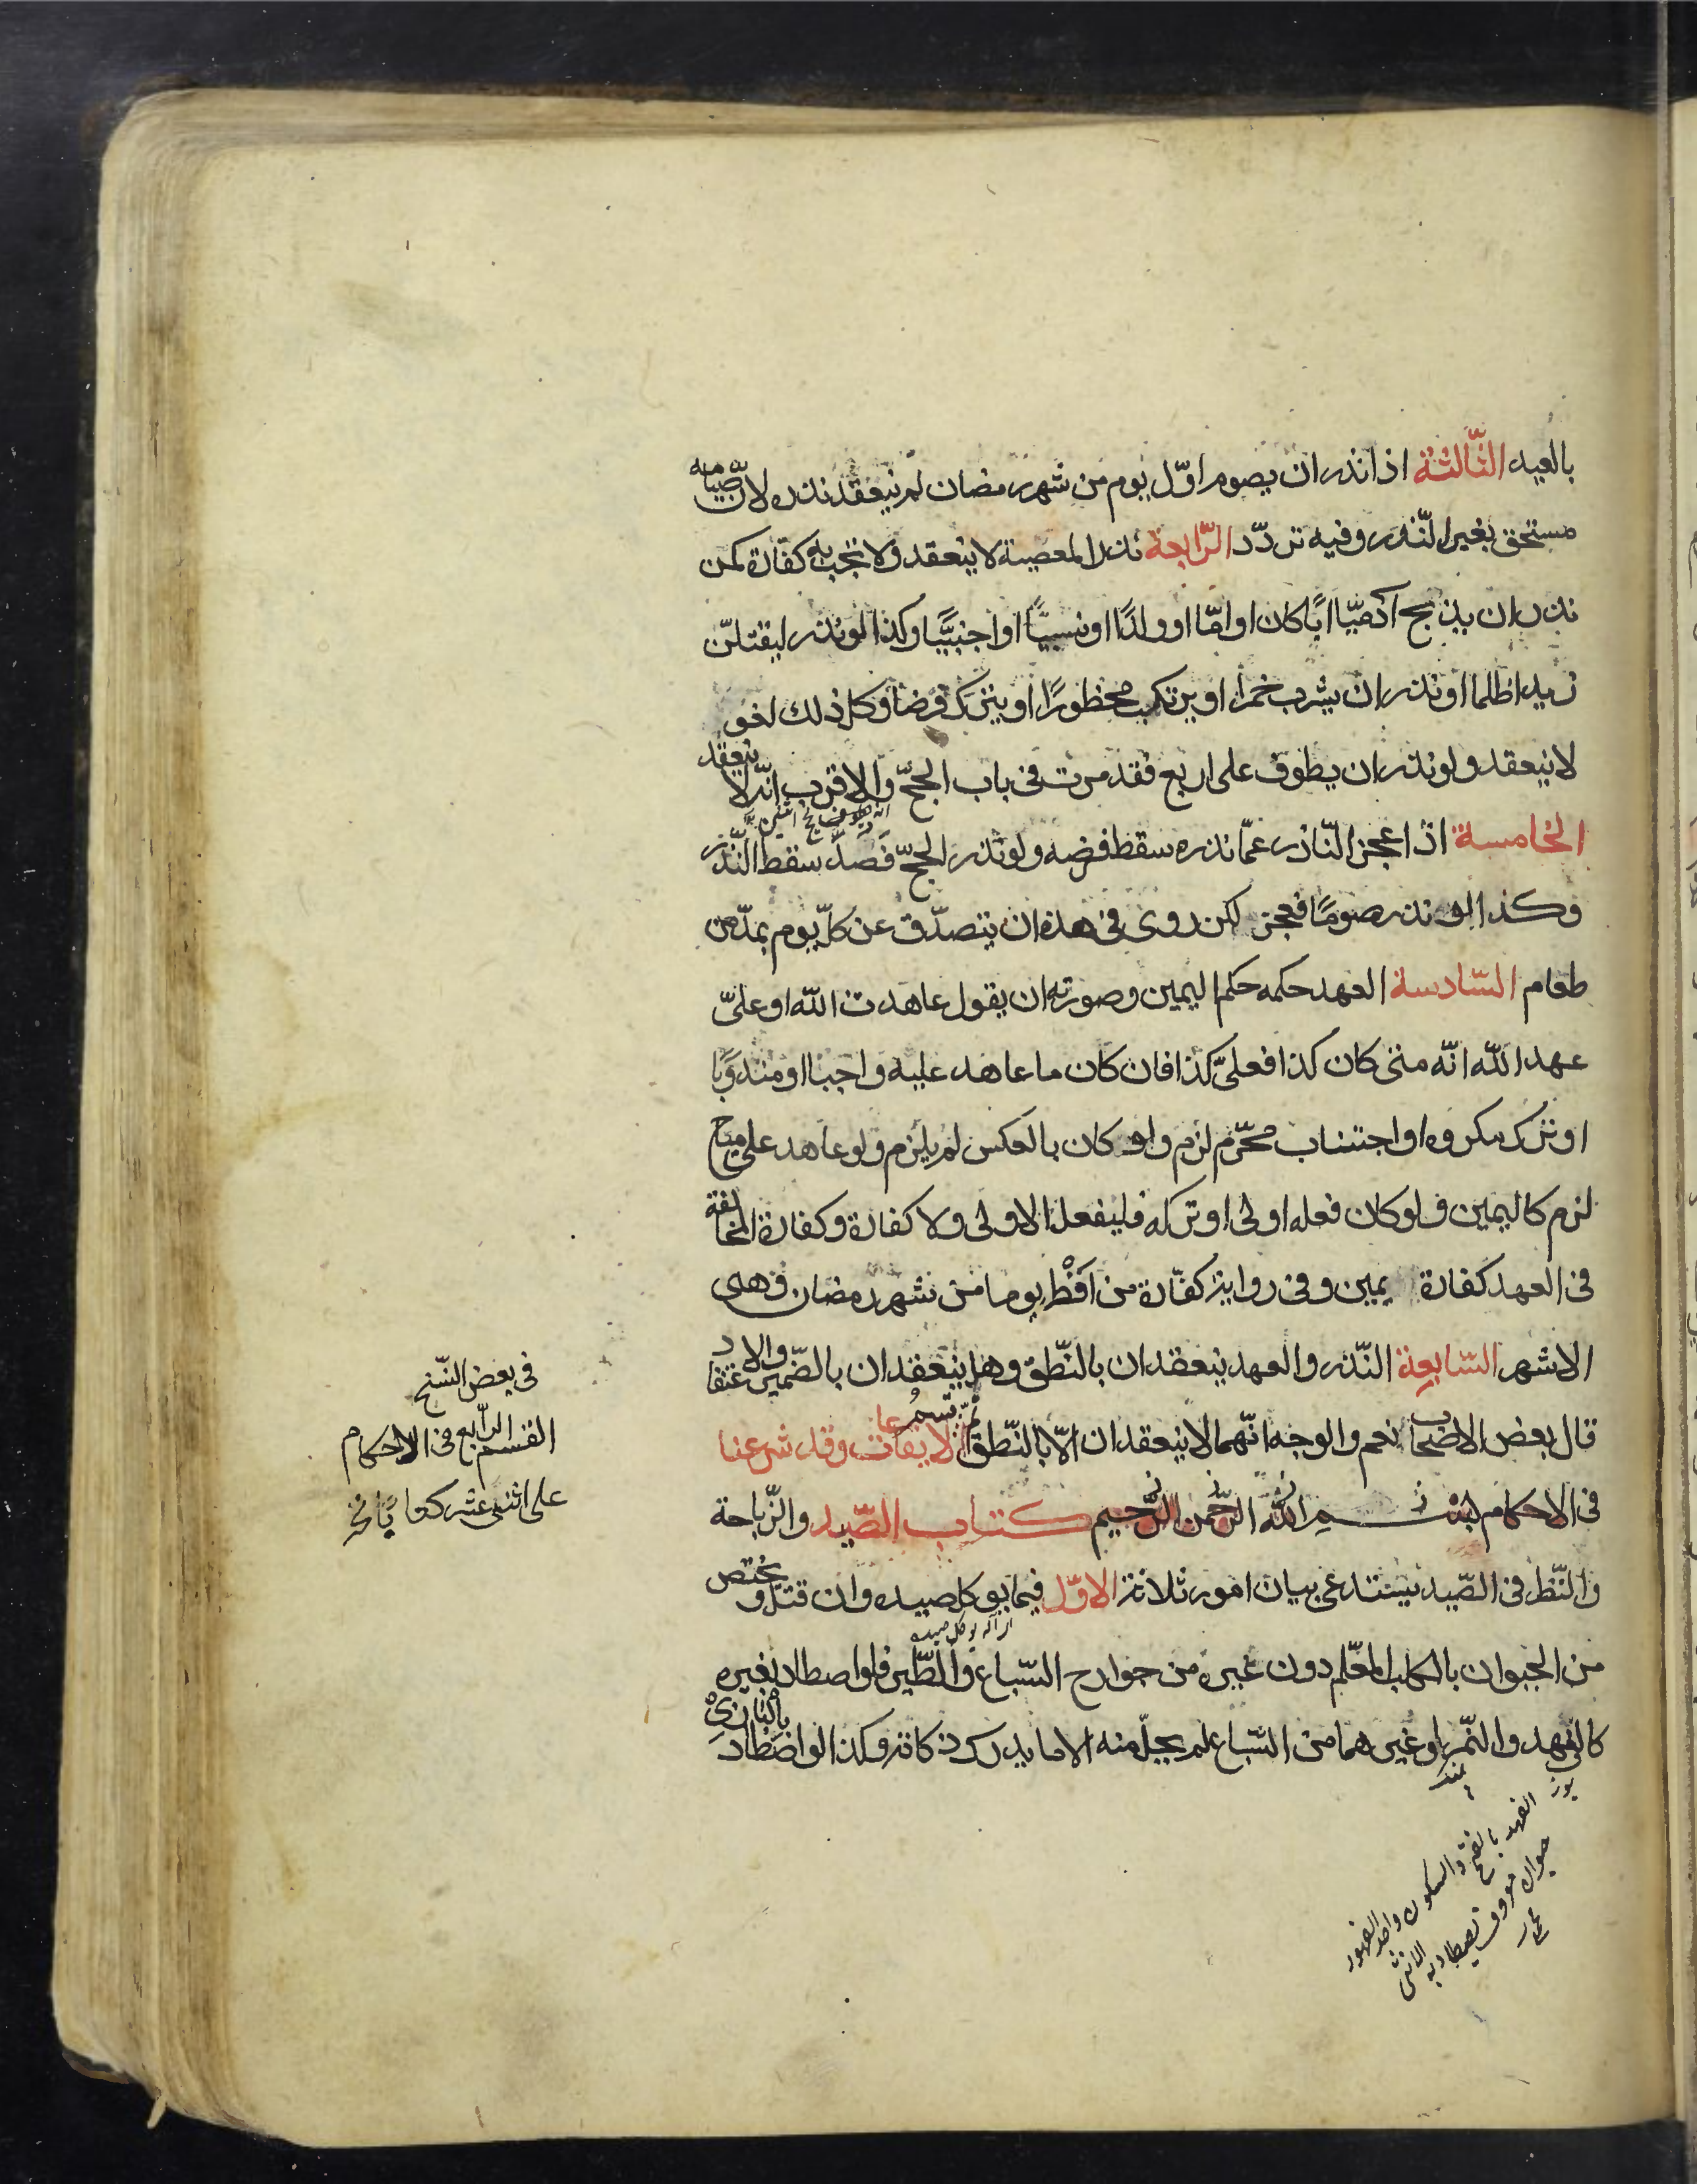 بالعيد الثّالثة اذا نذر ان يصوم اوّل يوم من شهر رمضان لم ينعقد نذره لانّ صيامه
مستحق بغير النّذر وفيه تردّد الرّابعة نذر المعصية لا ينعقد ولا تجب به كفّارة كمن
نذر ان يذبح آدميّا ابًا كان او امّا او ولدًا او نسيبًا او اجنبيًّا وكذا لو نذر ليقتلنّ
زيدا ظلما او نذر ان يشرب خمرا او يرتكب محظورًا او يترك فرضا وكل ذلك لغو
لا ينعقد ولو نذر ان يطوف على اربع فقد مرت فى باب الحجّ والاقرب انّه لا ينعقد
الخامسة اذا عجز النّاذر عمّا نذره سقط فرضه ولو نذر الحجّ فصدّ سقط النّذر
وكذا لو نذر صومًا فعجز لكن روى فى هذه ان يتصدّق عن كلّ يوم بمدّ من
طعام السّادسة العهد حكمه حكم اليمين وصورته ان يقول عاهدت اللّه او علىّ
عهد اللّه انّه متى كان كذا فعلىّ كذا فان كان ما عاهد عليه واجبا او مندوبًا
او ترك مكروه او اجتناب محّرم لزم ولو كان بالعكس لم يلزم ولو عاهد على مباح
لزم كاليمين ولو كان فعله اولى او تركه فليفعل الاولى ولا كفارة وكفارة المخالفة
فى العهد كفارة يمين وفى رواية كفّارة من افطر يوما من شهر رمضان وهى
الاشهر السّابعة النّذر والعهد ينعقدان بالنّطق وهل ينعقدان بالضّمير والاعتقاد
قال بعض الاصحاب نعم والوجه انّهما لا ينعقدان الّا بالنّطق تمّ قسم الايقاعات وقد شرعنا
فى الاحكام بسم اللّه الرّحمن الرّحيم كتاب الصّيد والذّباحة
والنّظر فى الصّيد يستدعى بيان امور ثلاثة الاوّل فيما يوكل صيده وان قتل ويختص
من الحيوان بالكلب المعّلم دون غيره من جوارح السّباع والطّير فلو اصطاد بغيره
كالفهد والنّمر او غيرهما من السّباع لم يحلّ منه الا ما يدرك ذكاته وكذا لو اصطاد بالبازى
فى بعض النّسخ
القسم الرّابع فى الاحكام
على اثنى عشر كتابًا
يوز
الفهد بالفتح والسكون واحد الفهود
حيوان معروف يصطاد به الانثى